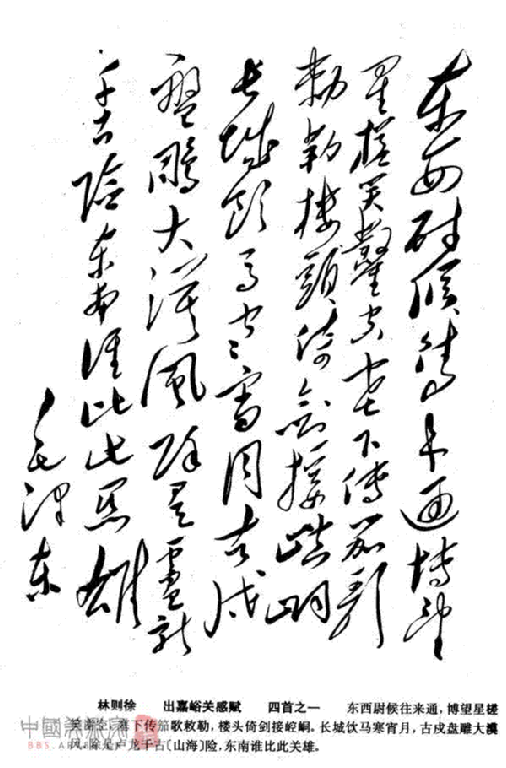 东西尉候往来通博望
星槎笑鑿空塞下傳笳歌
敕勒楼頭倚剑接崆峒
长城饮马寒宵月古戍
盤鵰大漠風除是盧龙
千古险东南谁比此关雄
毛泽东
林则徐 出嘉峪关感赋 四首之一 东西尉候往来通，博望星槎
笑凿空。塞下传笳歌敕勒，楼头倚剑接崆峒。长城饮马寒宵月，古戍盘雕大漠
风。除是卢龙千古〔山海〕险，东南谁比此关雄。